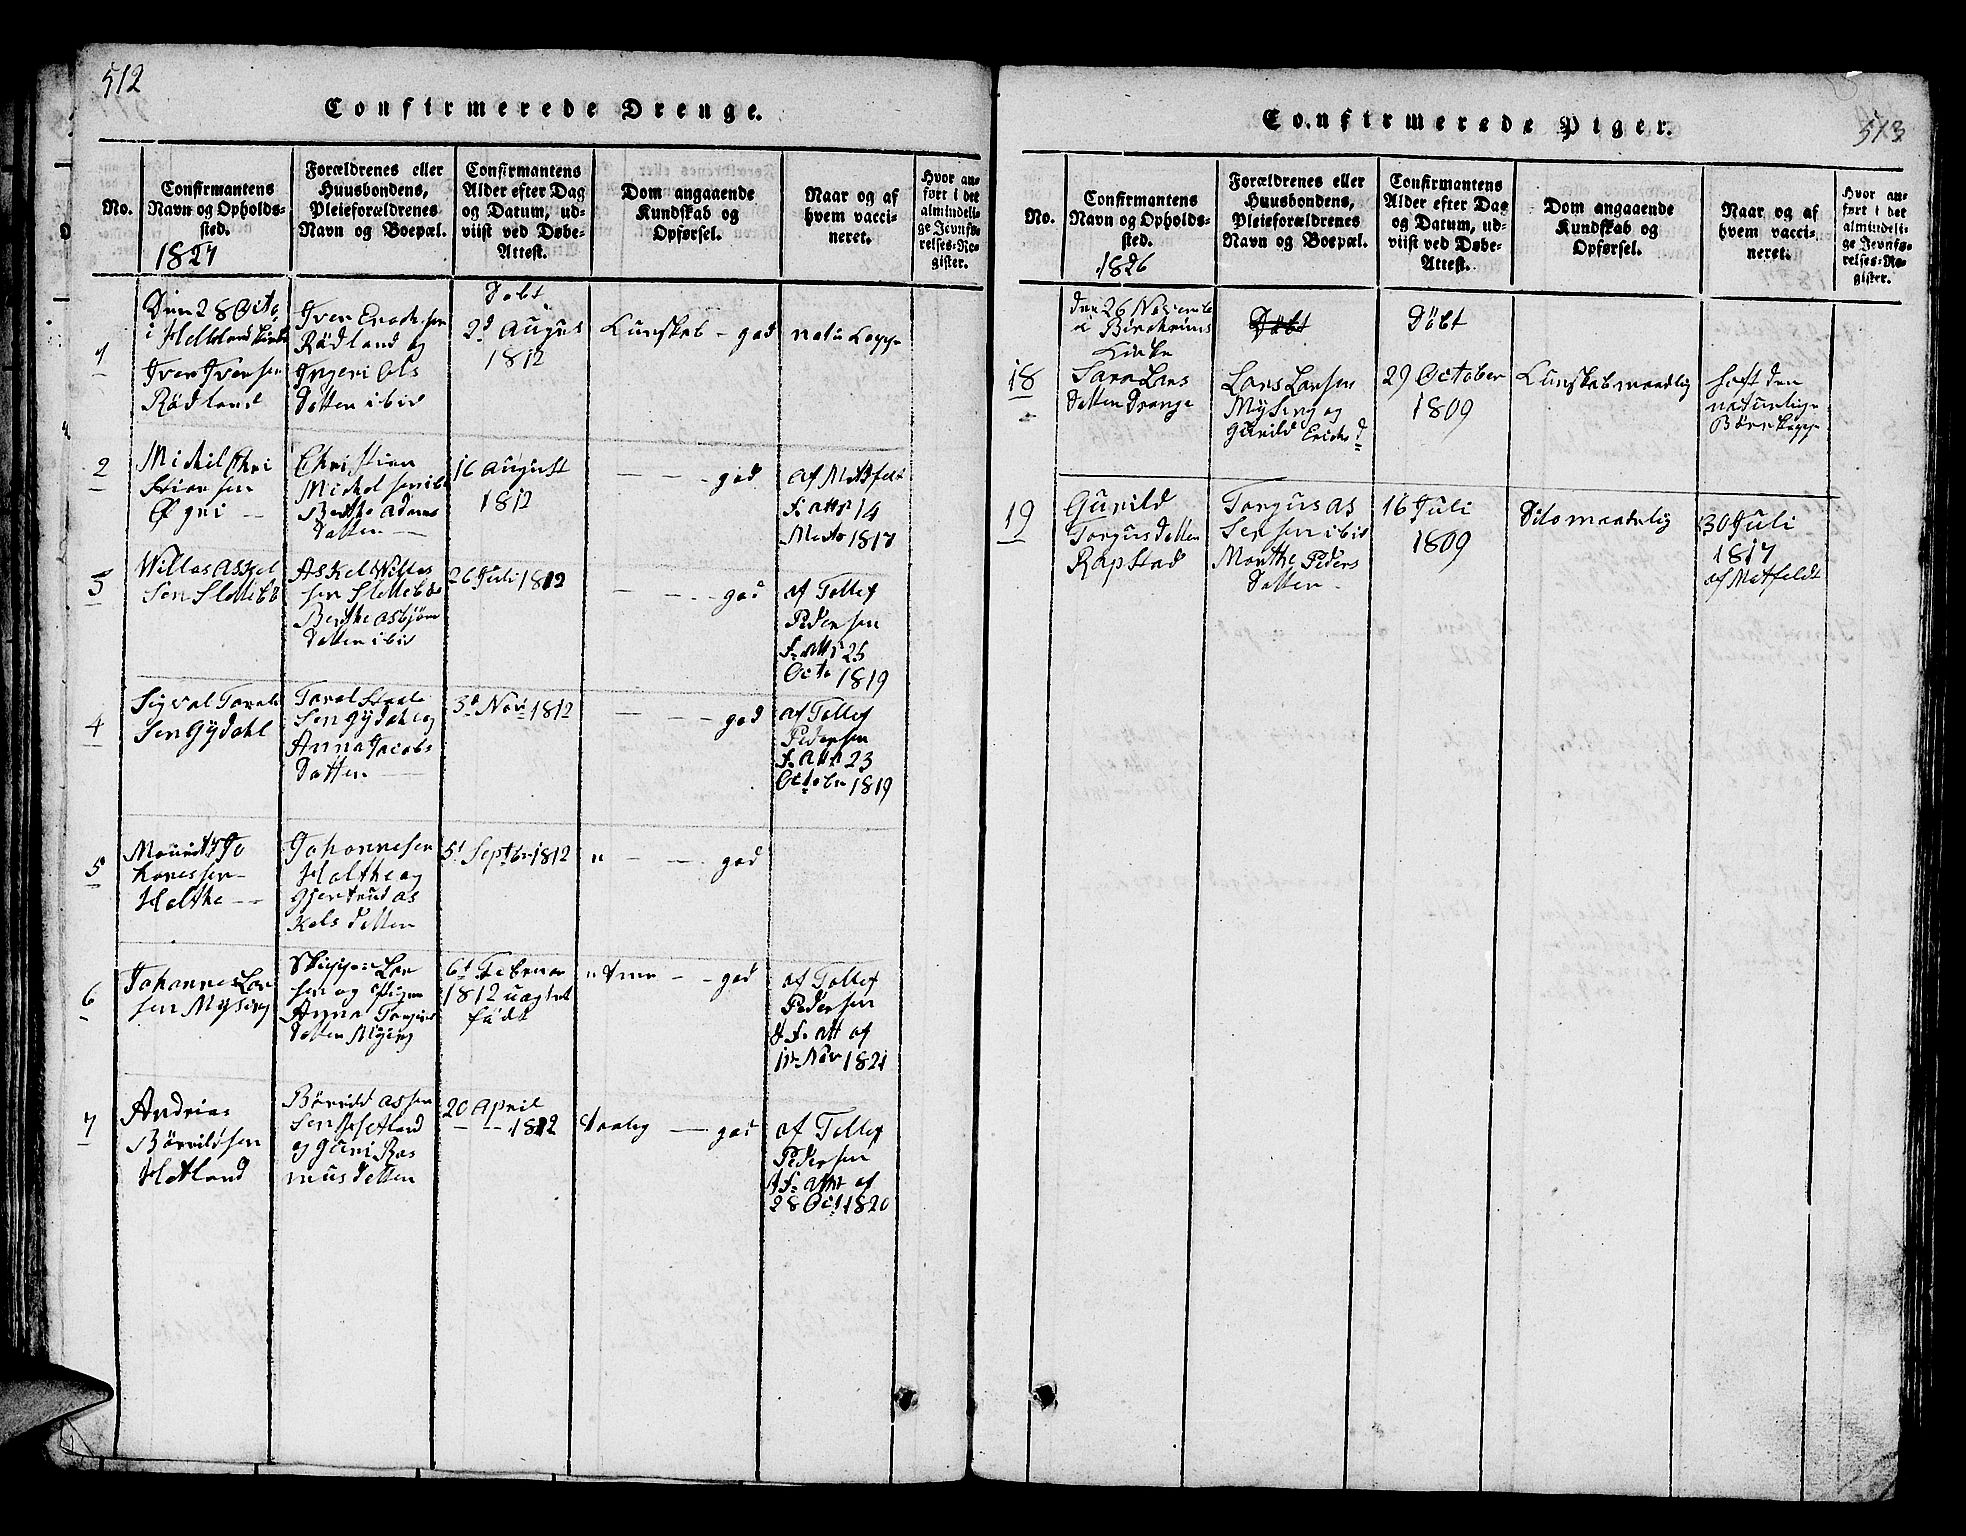 512
Confirmerede Drenge.
No.
Confirmantens
Navn og Opholds-
sted.
1827
Forældrenes eller
Huusbondens,
Pleieforældrenes
Navn og Boepæl.
Confirmantens
Alder efter Dag
og Datum, ud-
viist ved Døbe-
Attest.
Dom angaaende
Kundskab og
Opførsel.
Naar og af
hvem vacci-
neret.
Hvor an-
ført i det
almindeli-
ge Jevnfø-
relses-Re-
gister.
1
Den 28 Octo
i Helleland Kirke
Iver Iversen
Rödland
Iver Erichsen
Rödland og
Ingeri Ols
Datter ibid
Døbt
2d Augus
1812
Kunskab - god
2
Michel Chri
stiansen
Øgri
Christian
Michelsen ib
Berthe Adams
Datter
16 August
1812
— — - god
af Metzfelt
f. att 14
1817
3
Villas Askel
Sen Sletteb
Askel Villas
sen Slettebø
Berthe Asbjörn
Datter ibid
26 Juli 1812
— - - god
af Tollef
Pedersen
f. att 25
Octo 1819
4
Sigval Torals
Sen Gydahl
Toral
Sen Gydahl og
Anna Jacobs
Datter
3d Nov 1812
— — - god
af Tollef
Pedersen
f. att 23
October 1819
5
Jo
hanessen
Helthe
Johannesen
Halthe og
Gjertrud As
kels Datter
5t Septbr 1812
" — — - god
6
Johannes Lar
sen Mysing
Lar
sen og Pigen
Anna
Datter Mysing
6t Februar
1812 uagtet
född
— - god
af Tollef
Pedersen
f. att af
11 Nov 1821
7
Andrias
Börrildsen
Hetland
Börrild Assen
Sen Hetland
og Guri Ras
mus Datter
20 April
1812
— god
af Tollef
Pedersen
f. att af
28 Oct 1820
513
Confirmerede Piger.
No.
Confirmantens
Navn og Opholds-
sted.
1826
Forældrenes eller
Huusbondens,
Pleieforældrenes
Navn og Boepæl.
Confirmantens
Alder efter Dag
og Datum, ud-
viist ved Døbe-
Attest.
Dom angaaende
Kundskab og
Opførsel.
Naar og af
hvem vacci-
neret.
Hvor an-
ført i det
almindeli-
ge Jevnfø-
relses-Re-
gister.
den 26 Novemb
i Birchrims
Kirke
Døbt
Döbt
18
Sara Lars
Datter Drange
Lars Larsen
Mysing og
Gurild Erichs d
29 October
1809
Kunskab maadlig
haft den
naturlige
Börnekopp
19
Gurild
Torgusdatter
Rapstad
Torgus As
Sensen ibid
Marthe Peders
Datter
16 Juli
1809
Dito maadelig
30 Juli
1817
af Metfeldt